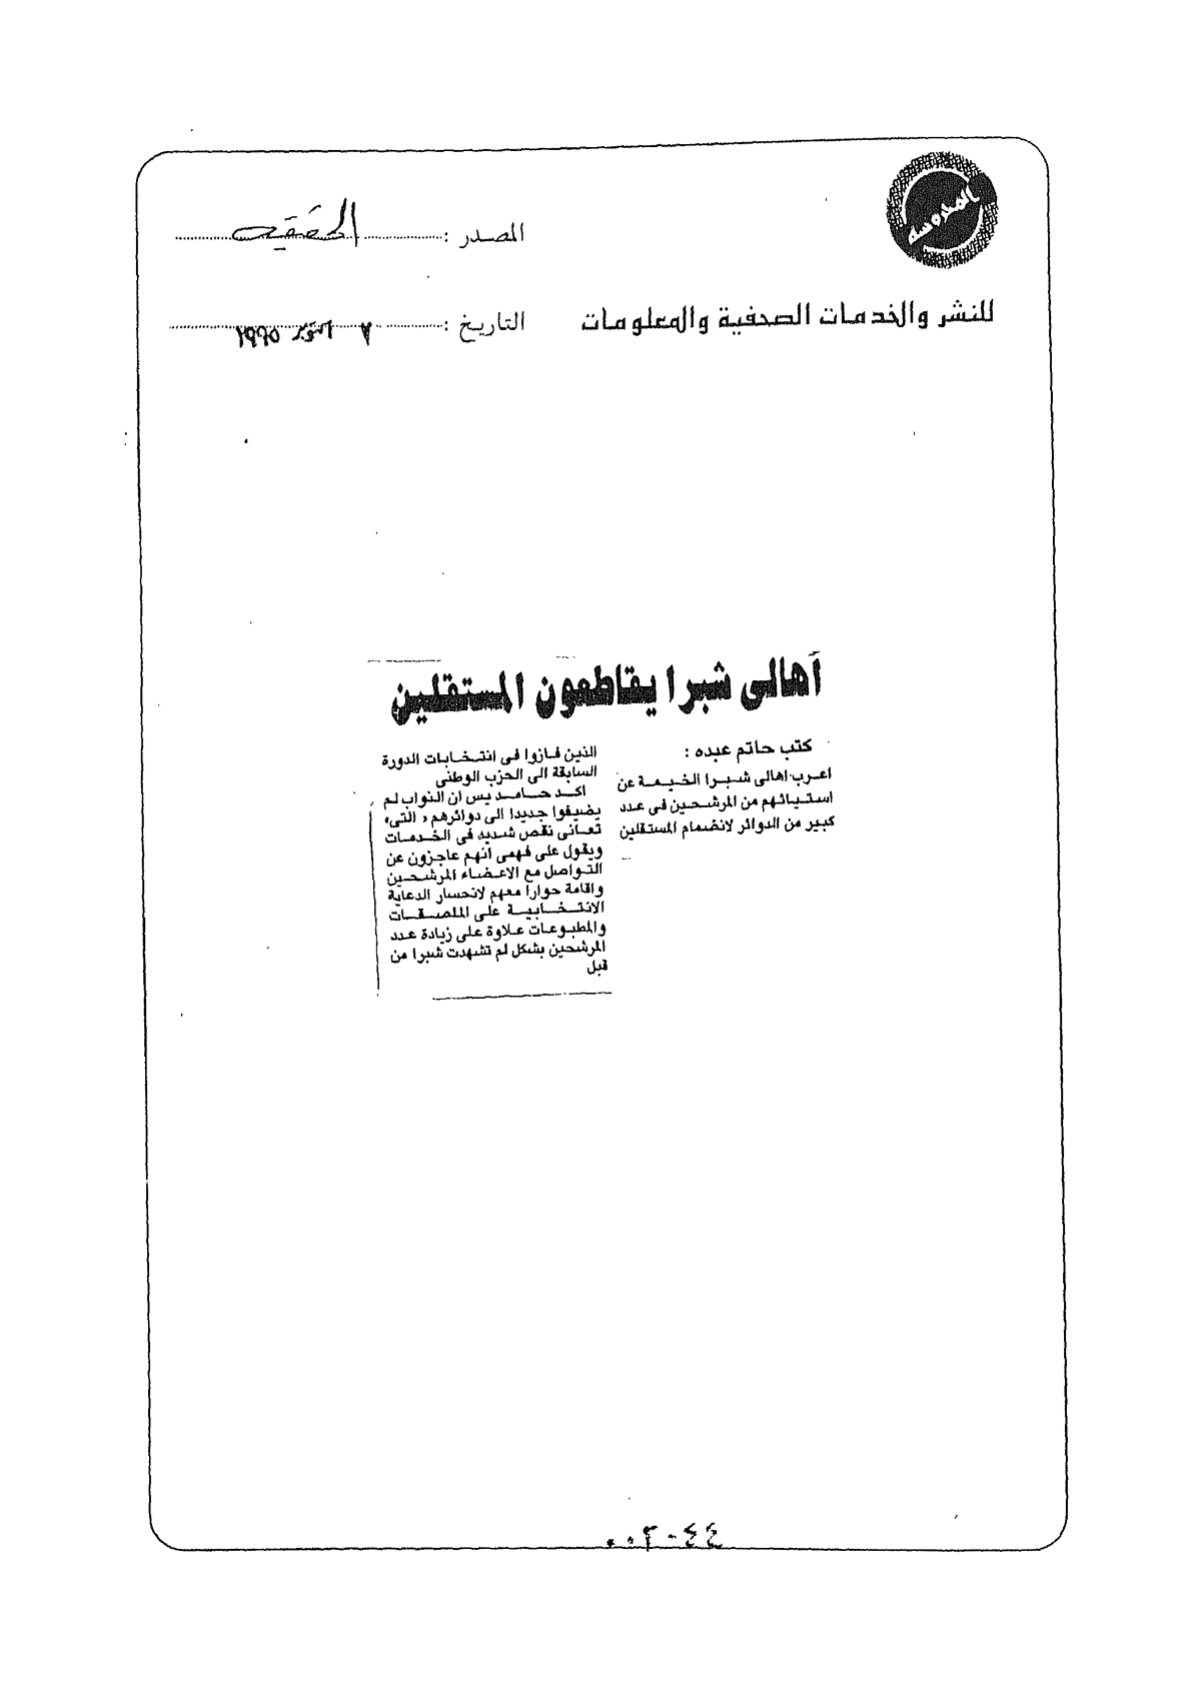 المصدر : الحقيقه
للنشر والخدمات الصحفية والمعلومات
التاريخ : ٧ اكتوبر ١٩٩٥
أهالى شبرا يقاطعون المستقلين
كتب حاتم عبده :
اعرب اهالى شبرا الخيمة عن
استيائهم من المرشحين فى عدد
كبير من الدوائر لانضمام المستقلين
الذين فازوا فى انتخابات الدورة
السابقة الى الحزب الوطنى
اكد حامد يس ان النواب لم
يضيفوا جديدا الى دوائرهم ، التى،
تعانى نقص شديد فى الخدمات
ويقول على فهمى انهم عاجزون عن
التواصل مع الاعضاء المرشحين
واقامة حوارا معهم لانحسار الدعاية
الانتخابية على الملصقات
والمطبوعات علاوة على زيادة عدد
المرشحين بشكل لم تشهدت شبرا من
قبل